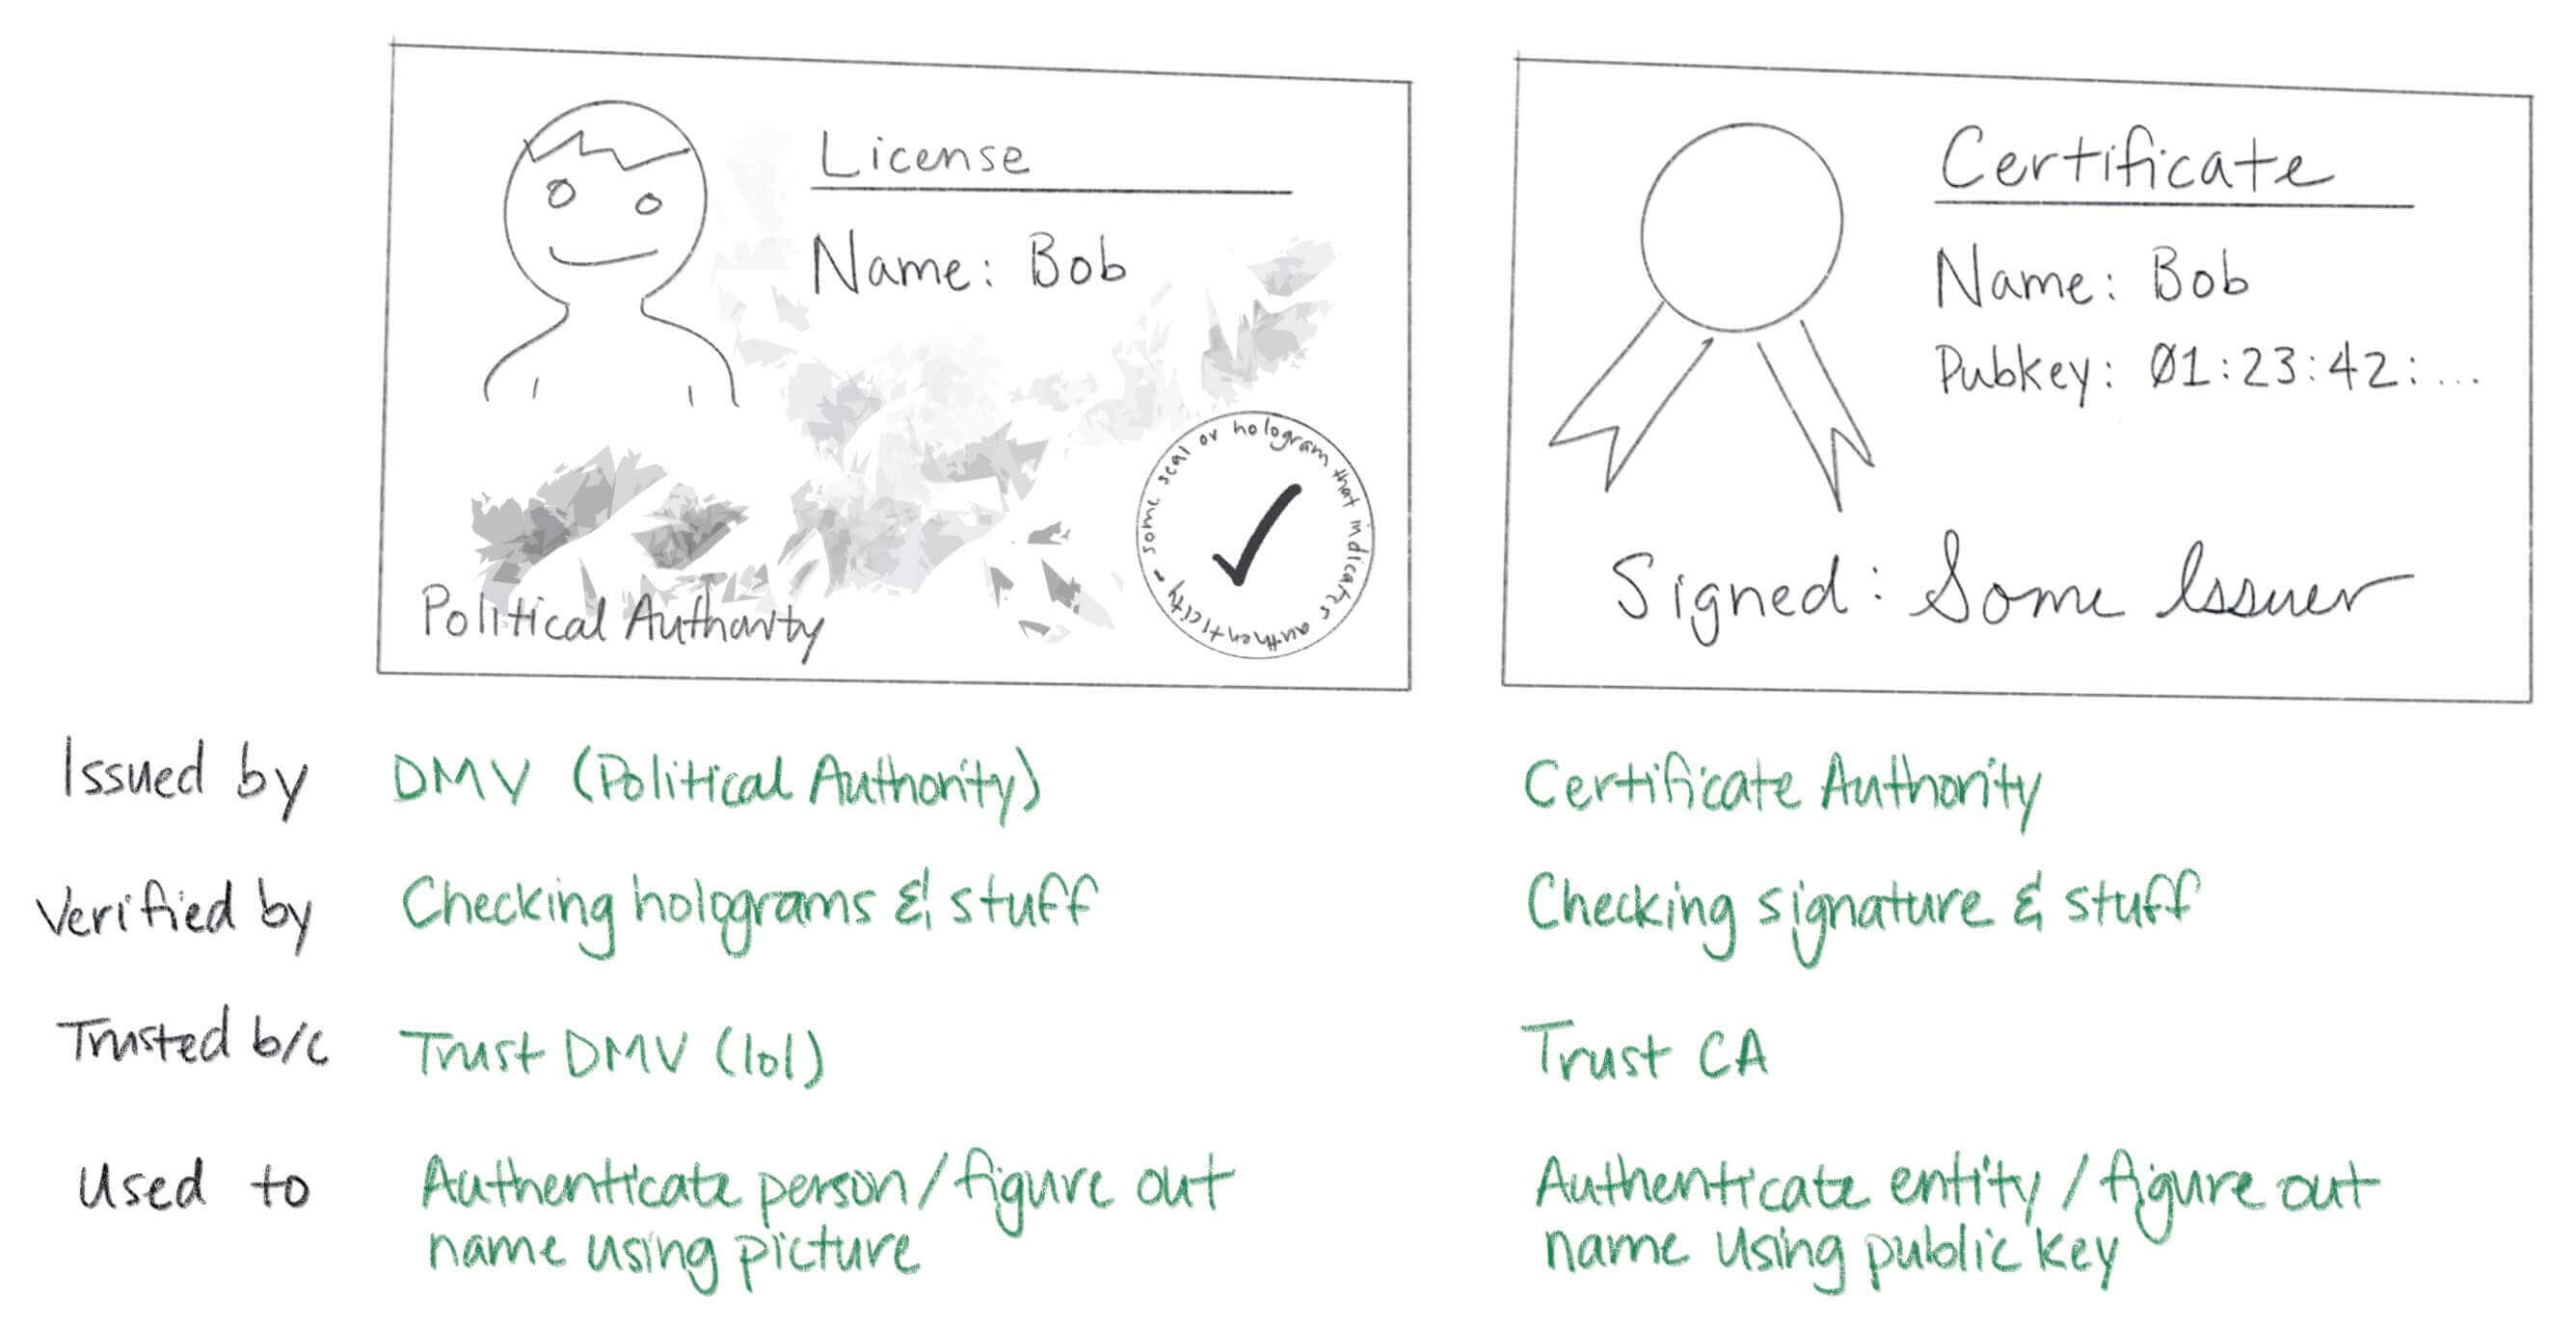 License
Name: Bob
some seal or hologram that indicates authenticity -
Political Authority
Certificate
Name: Bob
Pubkey: 01:23:42:...
Signed: Some Issuer
Issued by DMV (Political Authority) Certificate Authority
Verified by Checking holograms & stuff Checking signature & stuff
Trusted b/c Trust DMV (lol) Trust CA
Used to Authenticate person/figure out Authenticate entity/figure out
name using picture name using public key